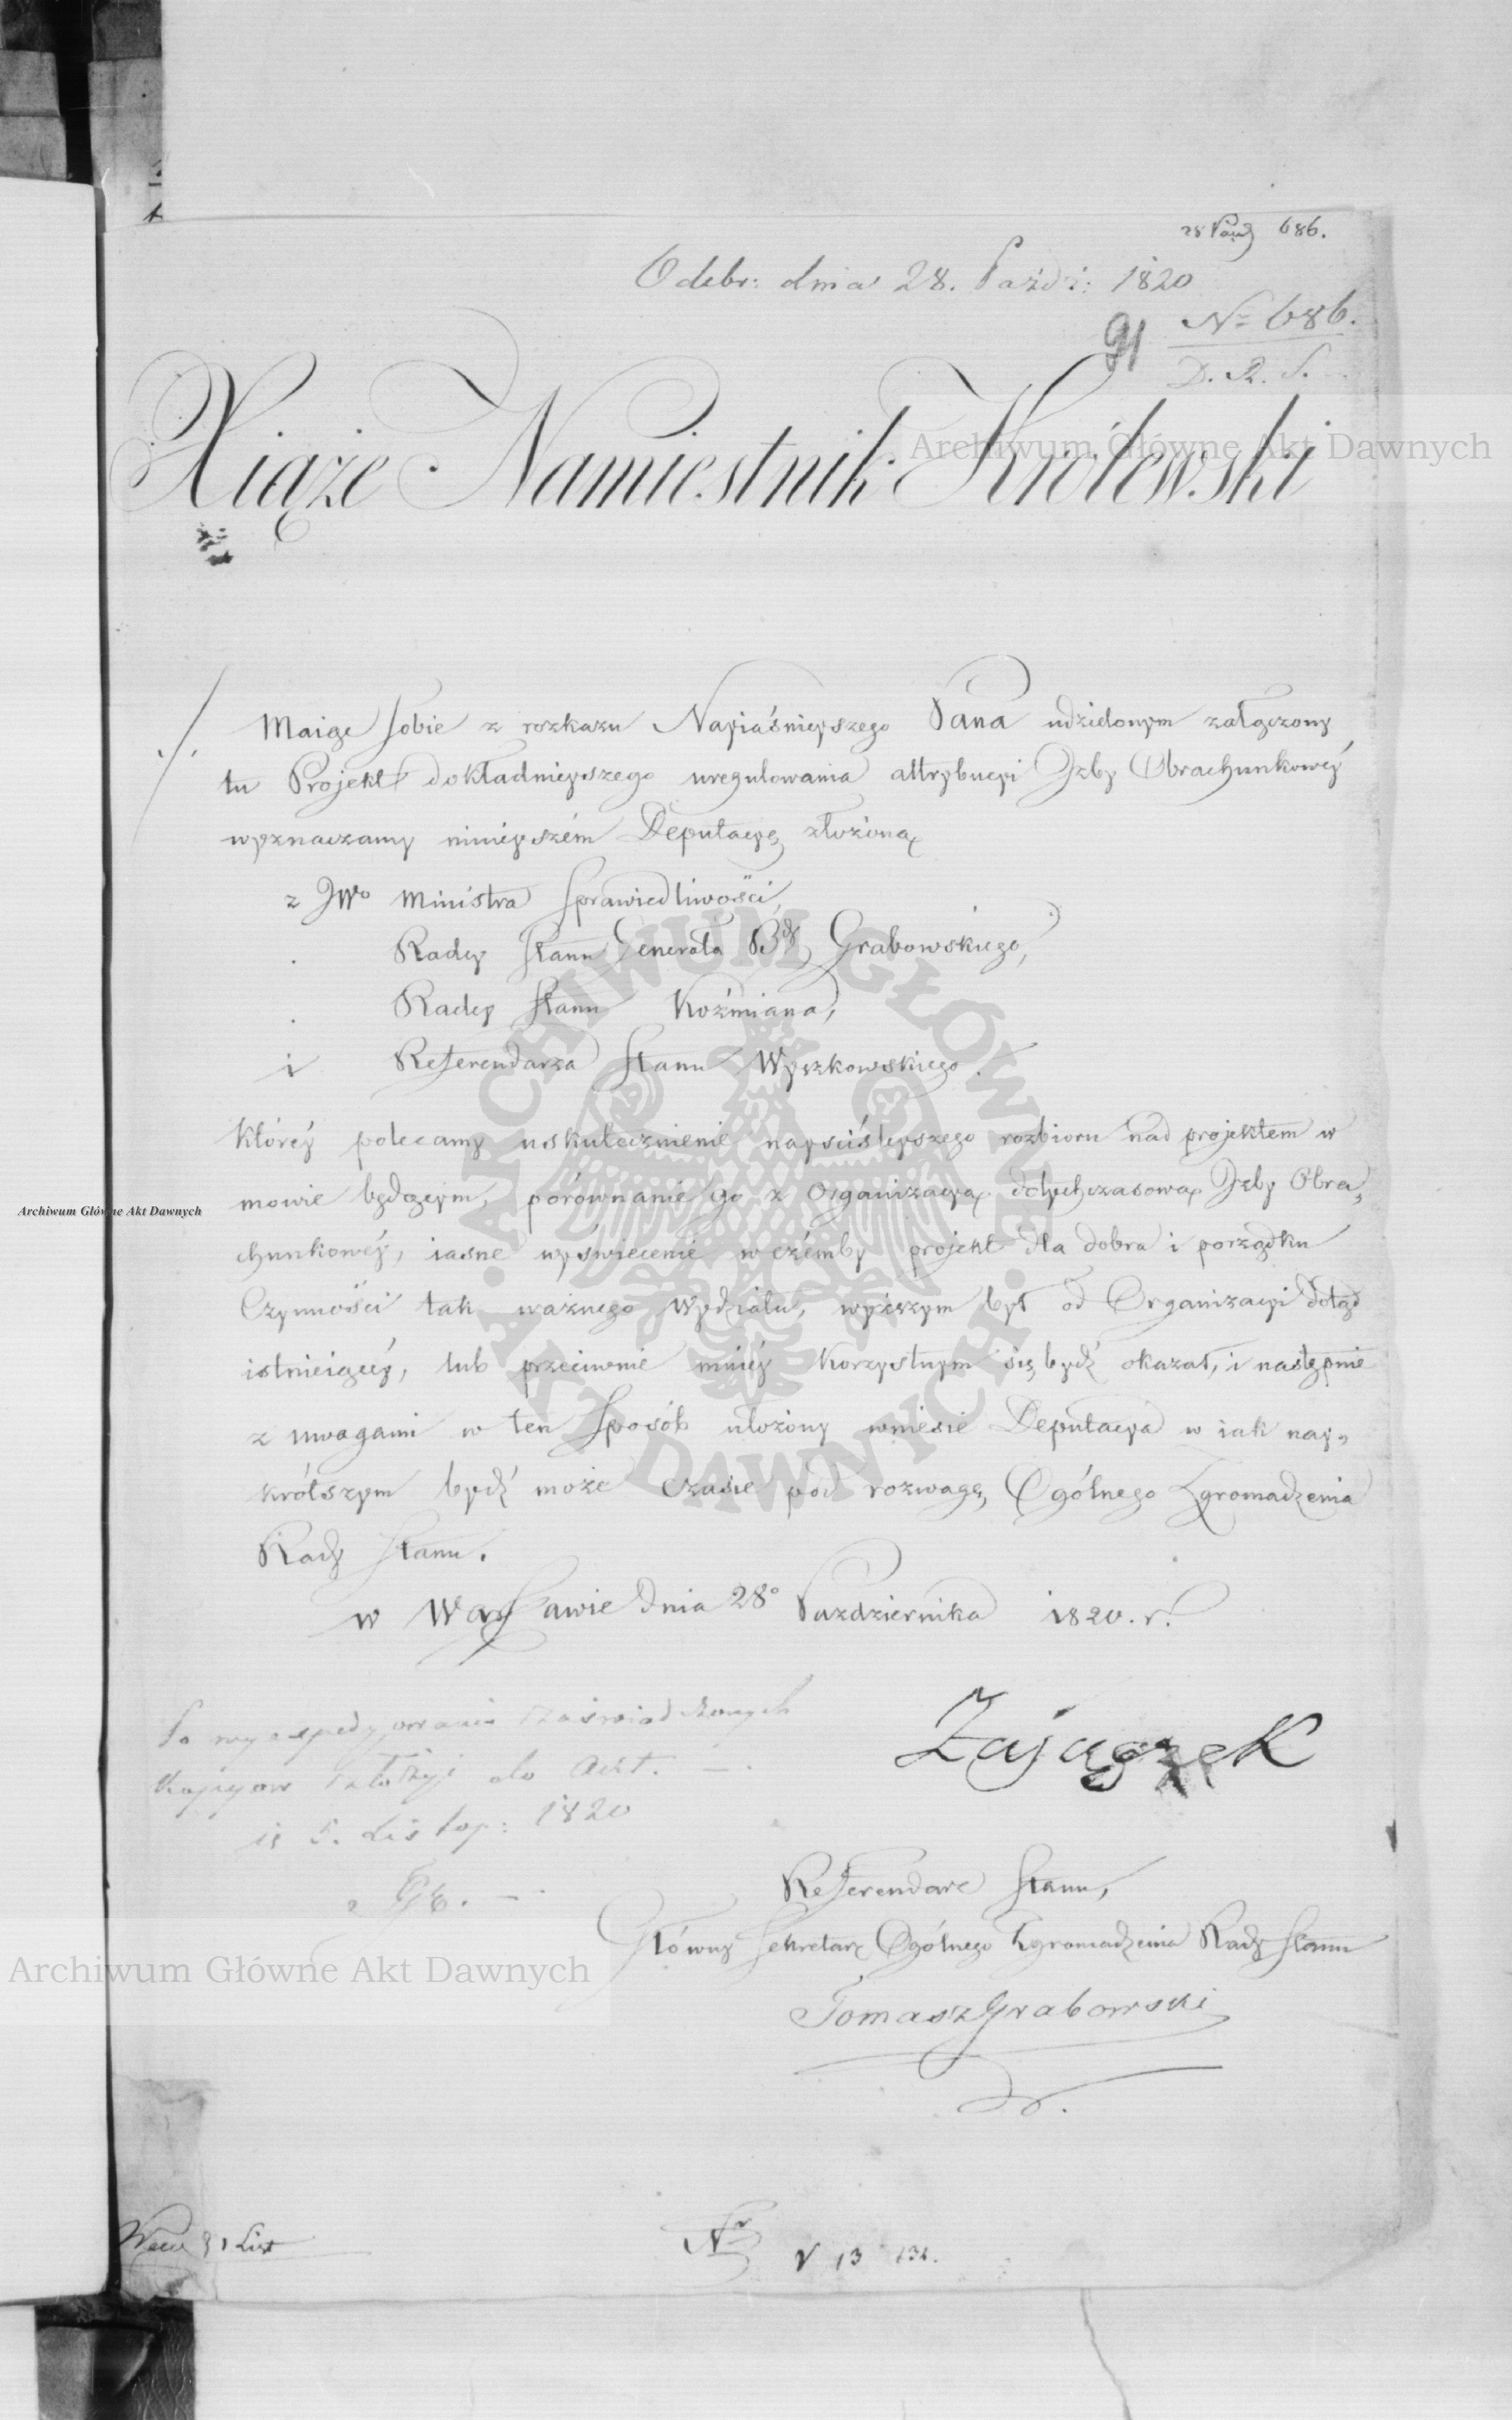 28 Paźd 686.
Odebr: dnia 28. Paźdź: 1820
91 No 686.
D. R. S.
Xiąże Namiestnik Królewski
Archiwum Główne Akt Dawnych
Maiąc sobie z rozkazu Nayiaśnieyszego Pana udzielonym załączony
tu Projekt dokładnieyszego uregulowania attrybucyi Jzby Obrachunkowéy
wyznaczamy ninieyszém Deputacyę złożoną
z JWo Ministra Sprawiedliwości,
Radcy Stanu Generała Bdy Grabowskiego,
Radcy Stanu Koźmiana,
i Referendarza Stanu Wyszkowskiego.
któréy polecamy uskutecznienie nayściśleyszego rozbioru nad projektem w
mowie będącym, porównanie go z Organizacyą dotychczasową Jzby Obra„
chunkowéy, iasne wyświecenie w czémby projekt dla dobra i porządku
Czynności tak ważnego Wydziału, wyższym był od Organizacyi dotąd
istnieiącéy, lub przeciwnie mniéy korzystnym się bydź okazał, i następnie
z uwagami w ten sposób ułożony wniesie Deputacya w iak nay„
krótszym bydź może czasie pod rozwagę Ogólnego Zgromadzenia
Rady Stanu.
w Warszawie dnia 28o Pazdziernika 1820. r.
Po wyexpedyowaniu zaświadczonych
kopiyow złożyć do Akt.
5. Listop: 1820
Zajączek
Referendarz Stanu,
Główny Sekretarz Ogólnego Zgromadzenia Rady Stanu
Tomasz Grabowski
Archiwum Główne Akt Dawnych
Archiwum Główne Akt Dawnych
ARCHIWUM GŁÓWNE AKT DAWNYCH
Nr
V 13